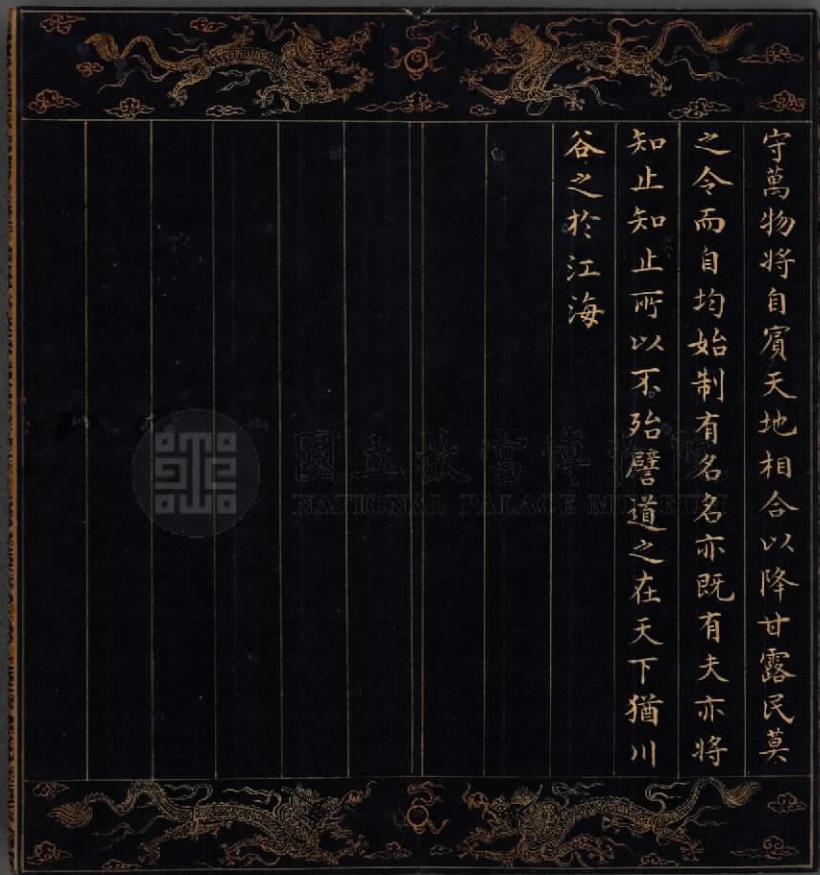 守萬物將自賓天地相合以降甘露民莫
之令而自均始制有名名亦既有夫亦將
知止知止所以不殆譬道之在天下猶川
谷之於江海
國立故宮博物院
NATIONAL PALACE MUSEUM